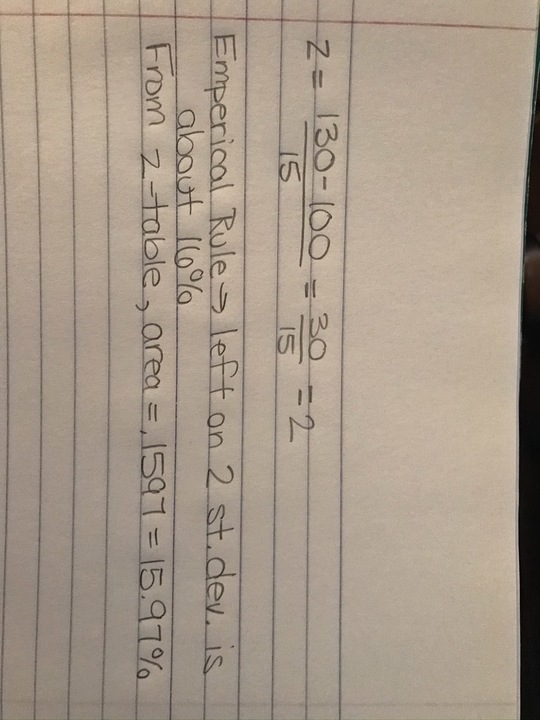 z = 130-100/15 = 30/15 = 2
Emperical Rule → left on 2 st. dev. is
about 16%
From z-table, area = .1597 = 15.97%